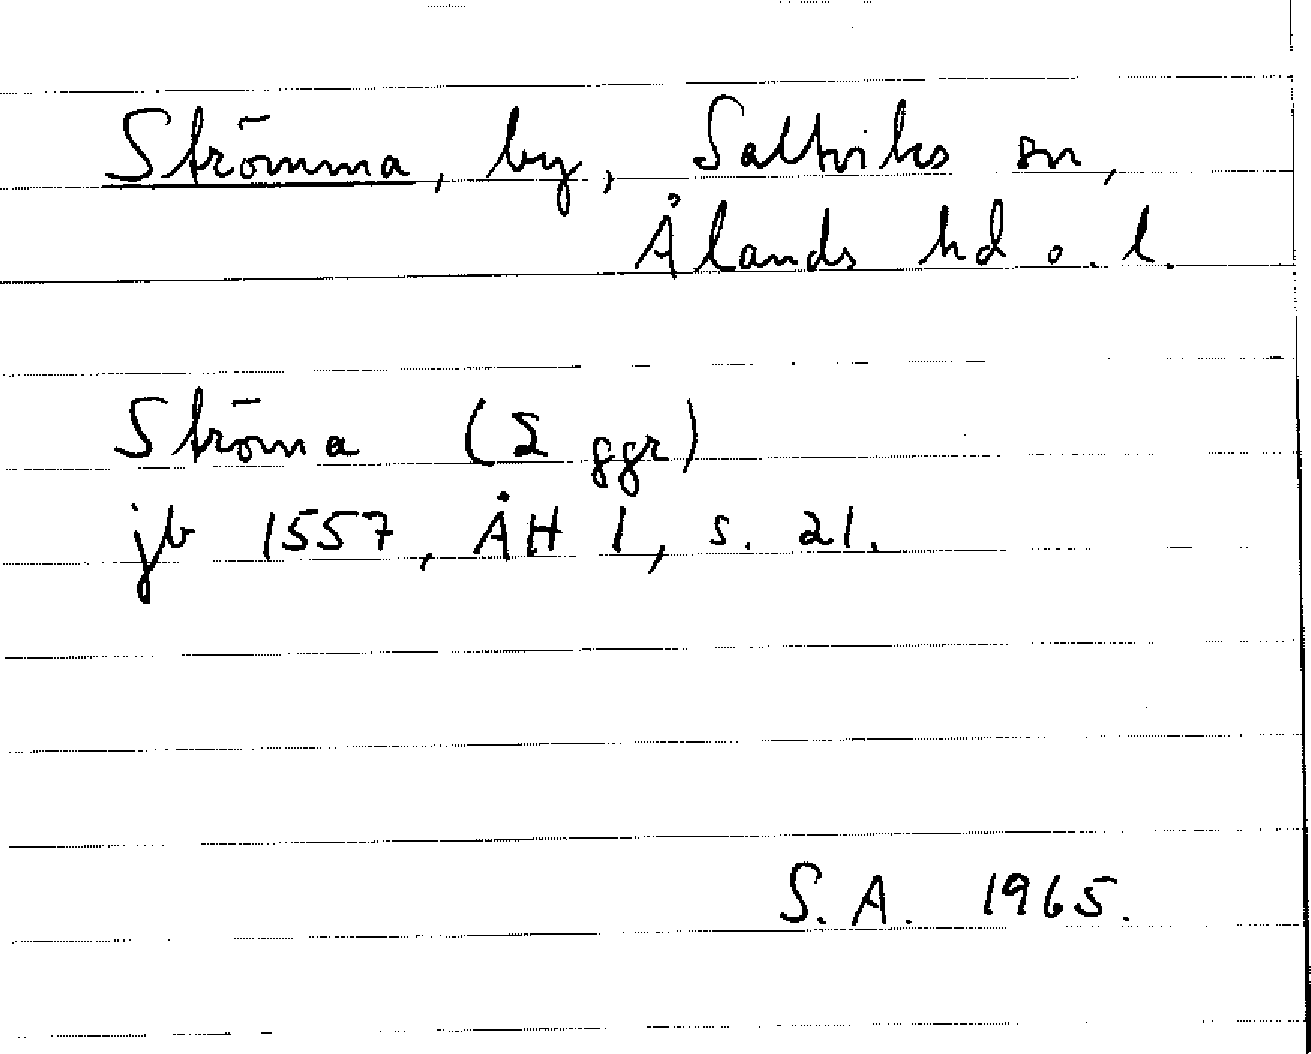 Strömma, by, Saltviks sn,
Ålands hd o. l.
Ströma (2 ggr)
jb 1557, ÅH 1, s. 21.
S. A. 1965.